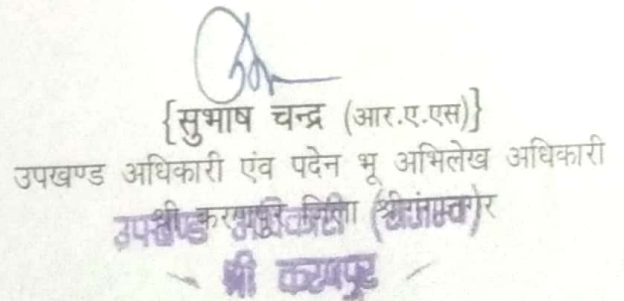 {सुभाष चन्द्र (आर.ए.एस)}
उपखण्ड अधिकारी एंव पदेन भू अभिलेख अधिकारी
श्री करणपुर जिला (श्रीगंगानगर
उपखण्ड अधिकारी
श्री करणपुर